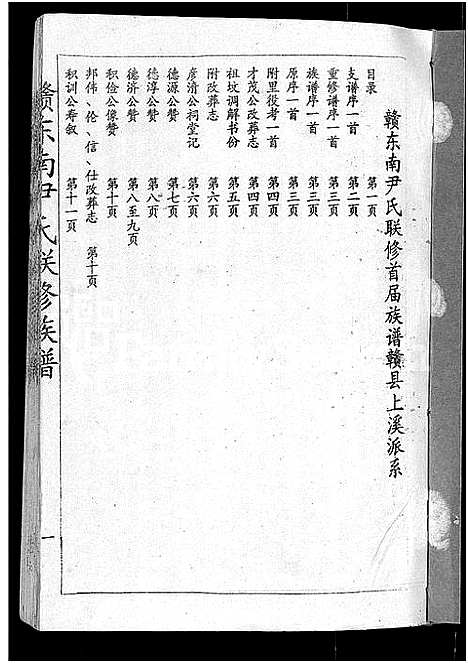 赣东南尹氏联修首届族谱赣县上溪派系
目录 第一页
支谱序一首 第二页
重修谱序一首 第三页
族谱序一首 第三页
原序一首 第三页
附里役考一首 第四页
才茂公改葬志 第四页
祖坟调解书份 第五页
附改葬志 第六页
彦清公祠堂记 第六页
德源公赞 第七页
德淳公赞 第八页
德济公赞 第八至九页
积俭公像赞 第十页
邦伟、伦、信、仕改葬志 第十页
积训公寿叙 第十一页
赣东南尹氏联修族谱
一